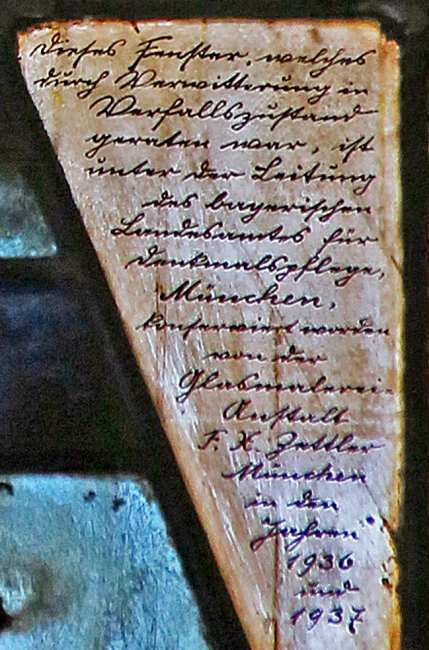 Dieses Fenster, welches
durch Verwitterung in
Verfallszustand
geraten war, ist
unter der Leitung
des bayerischen
Landesamtes für
Denkmalspflege,
München,
konserviert worden
von der
Glasmalerei-
Anstalt
F. X. Zettler
München
in den
Jahren
1936
und
1937